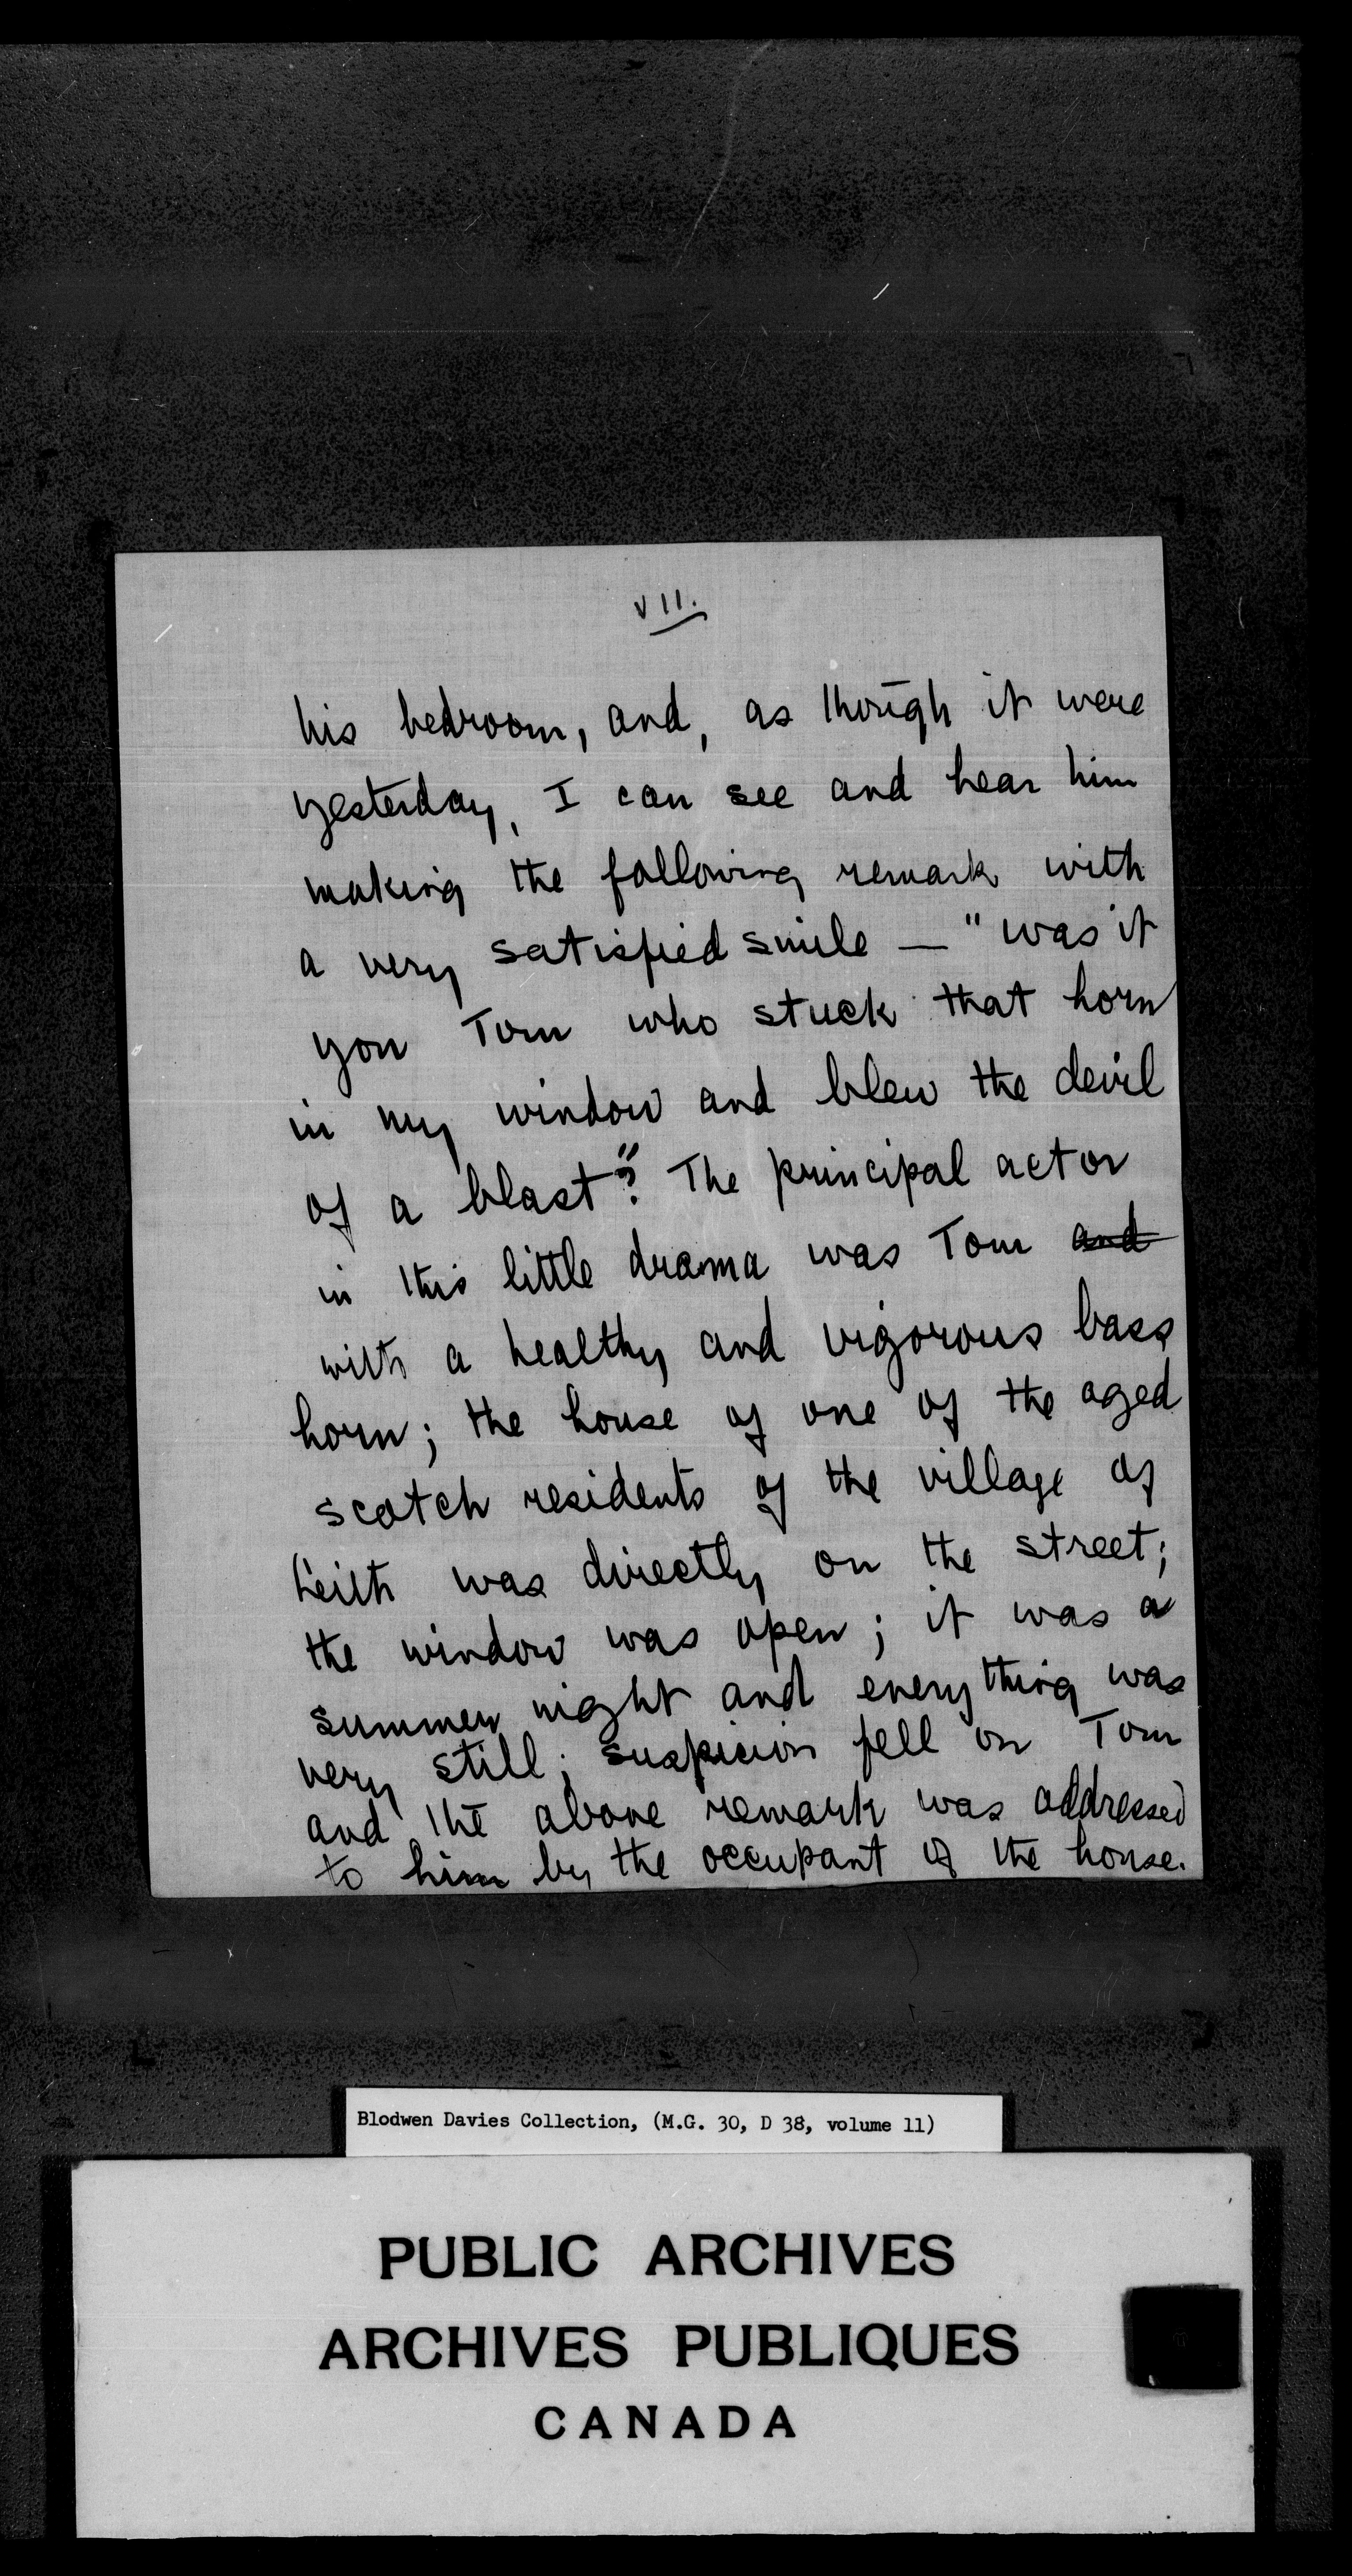 VII.
his bedroom, and, as though it were
yesterday, I can see and hear him
making the following remark with
a very satisfied smile — "was it
you Tom who stuck that horn
in my window and blew the devil
of a blast"? The principal actor
in this little drama was Tom and
with a healthy and vigorous bass
horn; the house of one of the aged
scotch residents of the village of
Leith was directly on the street;
the window was open; it was a
summer night and everything was
very still; suspicion fell on Tom
and the above remark was addressed
to him by the occupant of the house.
Blodwen Davies Collection, (M.G. 30, D 38, volume 11)
PUBLIC ARCHIVES
ARCHIVES PUBLIQUES
CANADA